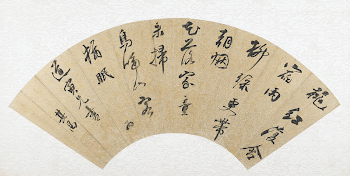 桃紅復含
宿雨
柳綠更帶
朝烟
花落家童
未掃
鳥啼山客
猶眠
道
其昌